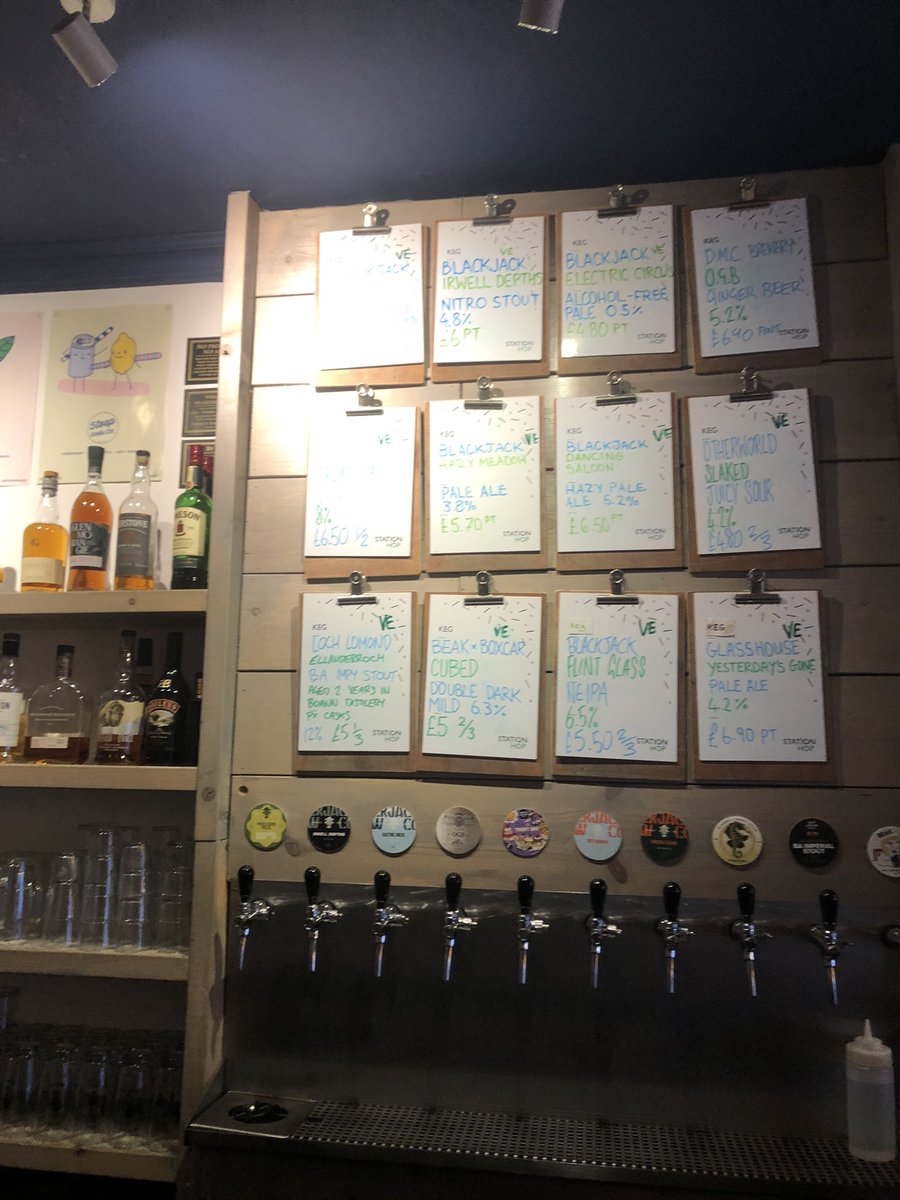 VE
KEG
VE
BLACKJACK
IRWELL DEPTHS
NITRO STOUT
4.8%
£6 PT
STATION
HOP
KEG
BLACKJACK VE
ELECTRIC CIRCUS
ALCOHOL-FREE
PALE 0.5%
£4.80 PT
KEG
D.M.C BREWERY
O.G.B
GINGER BEER
5.2%
£6.90 PINT
STATION
HOP
VE
8%
£6.50 1/2
KEG
VE
BLACKJACK
HAZY MEADOW
PALE ALE
3.8%
£5.70 PT
STATION
HOP
KEG
BLACKJACK VE
DANCING
SALOON
HAZY PALE
ALE 5.2%
£6.50 PT
STATION
HOP
KEG
VE
OTHERWORLD
SLAKED
JUICY SOUR
4.2%
£4.80 2/3
STATION
HOP
KEG
VE
LOCH LOMOND
B.A IMPY STOUT
AGED 2 YEARS IN
BOANN DISTILLERY
PX CASKS
12% £5 1/3
STATION
HOP
KEG
VE
BEAK × BOXCAR
CUBED
DOUBLE DARK
MILD 6.3%
£5 2/3
STATION
HOP
VE
BLACKJACK
FLINT GLASS
NEIPA
6.5%
£5.50 2/3
STATION
HOP
KEG
VE
GLASSHOUSE
YESTERDAY'S GONE
PALE ALE
4.2%
£6.90 PT
STATION
HOP
IRWELL DEPTHS
BA IMPERIAL
STOUT